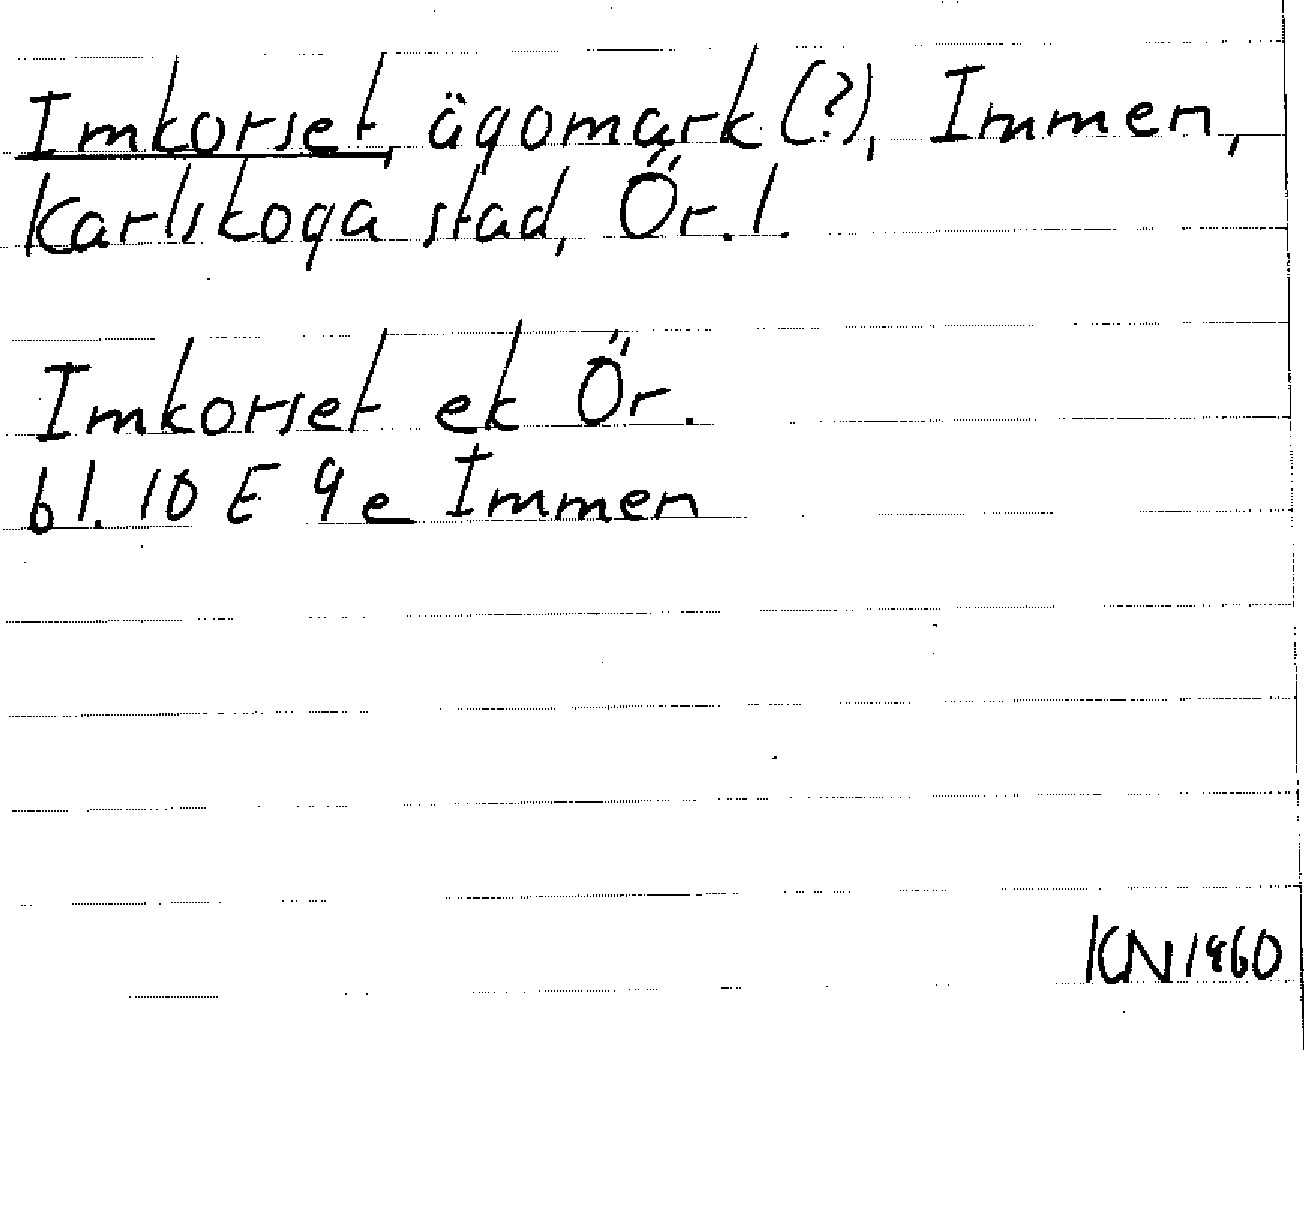 Imkorset, ägomark (?), Immen,
Karlskoga stad, Ör. l.
Imkorset ek Ör.
bl. 10 E 9e Immen
KN 1960